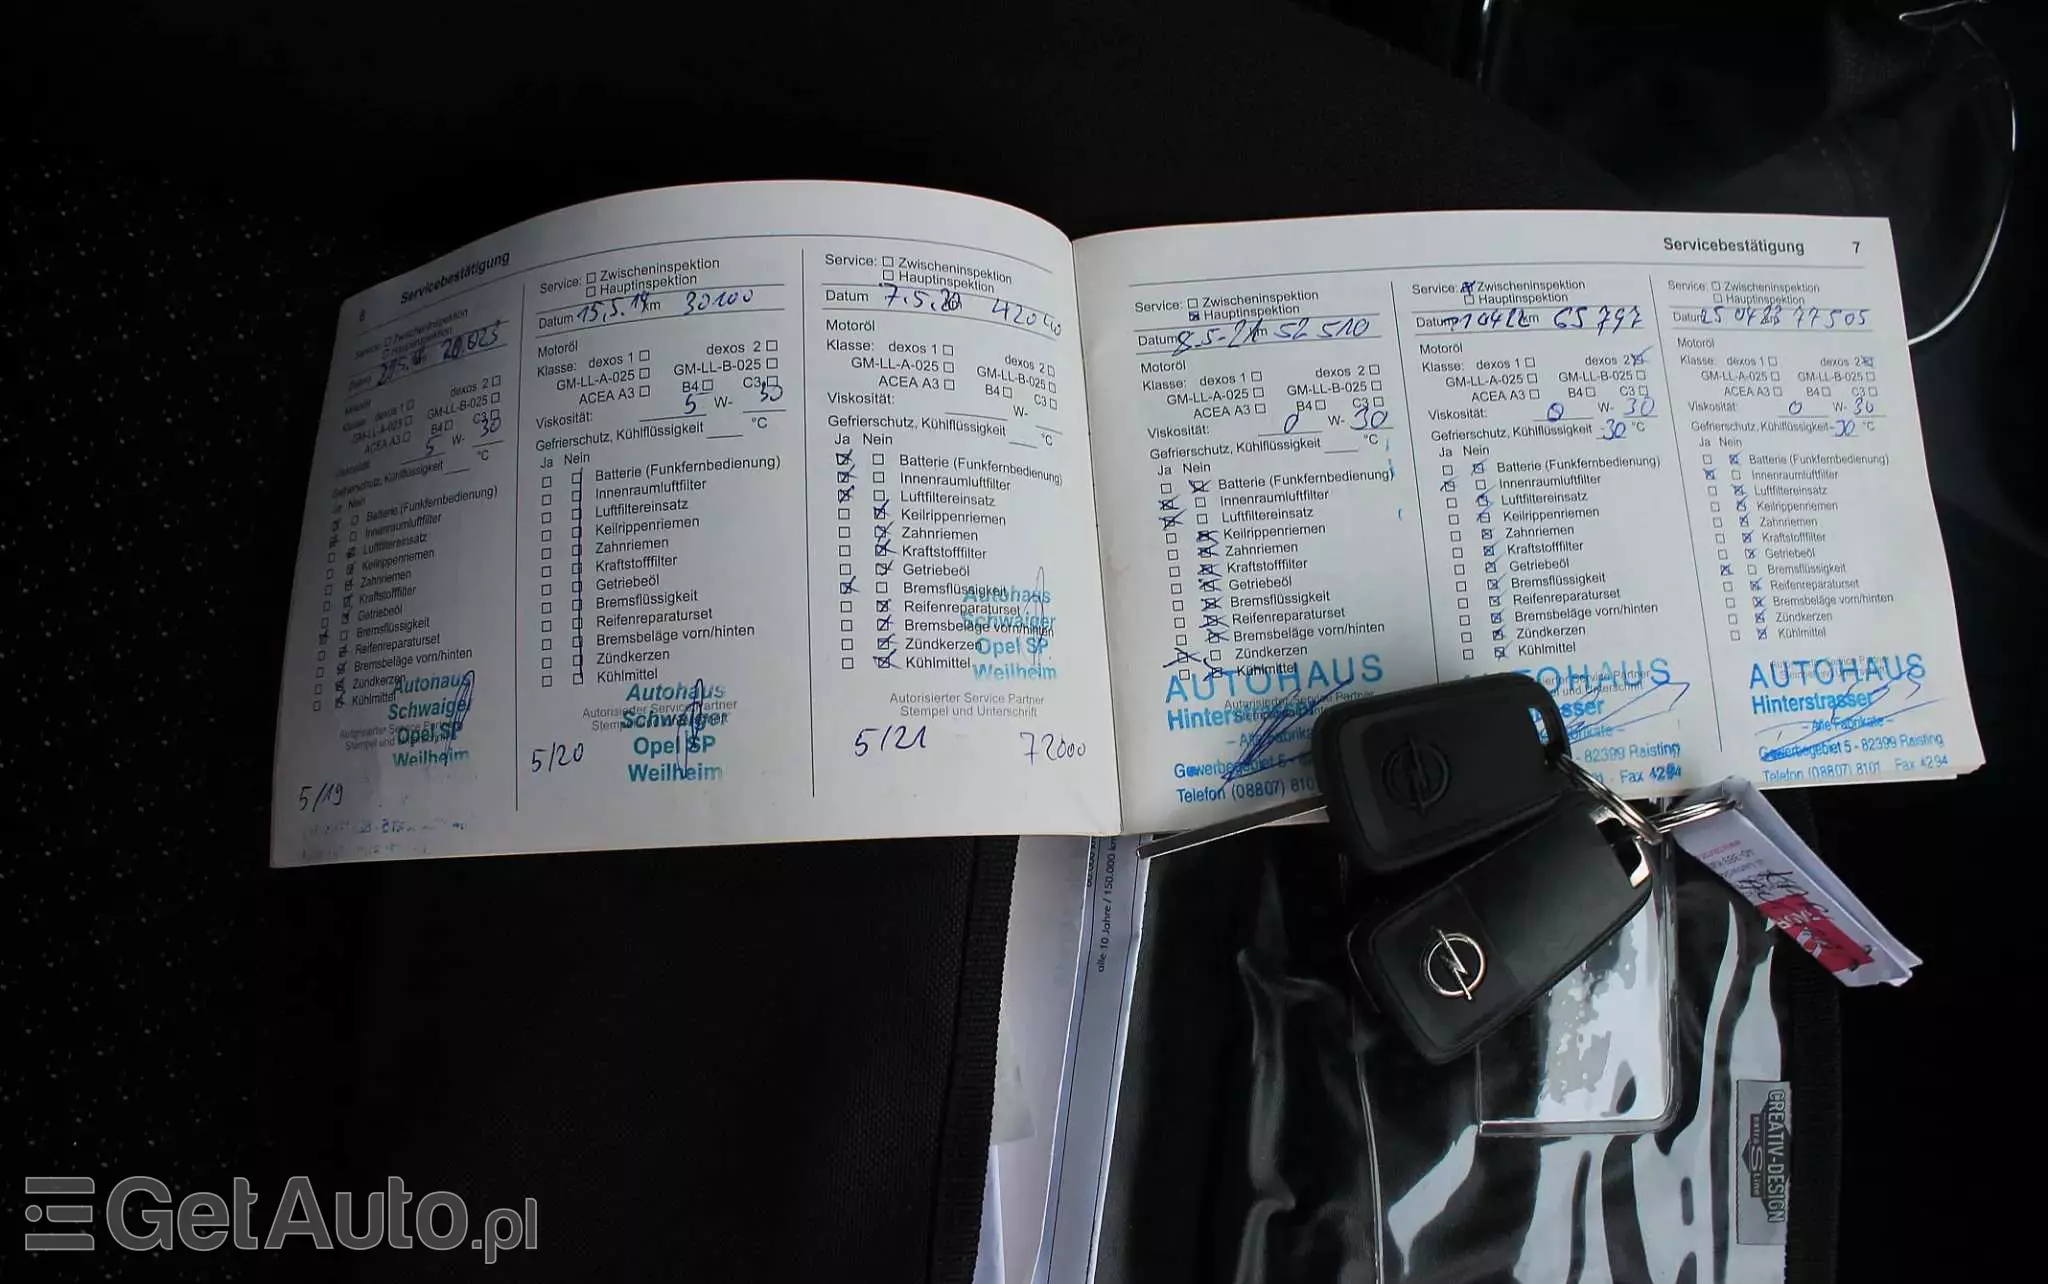 6
Servicebestätigung
Service: Zwischeninspektion
Hauptinspektion
Datum 20.023
Motoröl
Klasse: dexos 1 dexos 2
GM-LL-A-025 GM-LL-B-025
ACEA A3 B4 C3
Viskosität: 5 W- 30
Gefrierschutz, Kühlflüssigkeit °C
Ja Nein
Batterie (Funkfernbedienung)
Innenraumluftfilter
Luftfiltereinsatz
Keilrippenriemen
Zahnriemen
Kraftstofffilter
Getriebeöl
Bremsflüssigkeit
Reifenreparaturset
Bremsbeläge vorn/hinten
Zündkerzen
Kühlmittel
Autohaus
Schwaiger
Opel SP
Weilheim
Autorisierter Service Partner
Stempel und Unterschrift
5/19
Service: Zwischeninspektion
Hauptinspektion
Datum 15.5.19 km 30100
Motoröl
Klasse: dexos 1 dexos 2
GM-LL-A-025 GM-LL-B-025
ACEA A3 B4 C3
Viskosität: 5 W- 30
Gefrierschutz, Kühlflüssigkeit °C
Ja Nein
Batterie (Funkfernbedienung)
Innenraumluftfilter
Luftfiltereinsatz
Keilrippenriemen
Zahnriemen
Kraftstofffilter
Getriebeöl
Bremsflüssigkeit
Reifenreparaturset
Bremsbeläge vorn/hinten
Zündkerzen
Kühlmittel
Autohaus
Schwaiger
Opel SP
Weilheim
Autorisierter Service Partner
Stempel und Unterschrift
5/20
Service: Zwischeninspektion
Hauptinspektion
Datum 7.5.20
Motoröl
Klasse: dexos 1 dexos 2
GM-LL-A-025 GM-LL-B-025
ACEA A3 B4 C3
Viskosität: W-
Gefrierschutz, Kühlflüssigkeit °C
Ja Nein
Batterie (Funkfernbedienung)
Innenraumluftfilter
Luftfiltereinsatz
Keilrippenriemen
Zahnriemen
Kraftstofffilter
Getriebeöl
Bremsflüssigkeit
Reifenreparaturset
Bremsbeläge vorn/hinten
Zündkerzen
Kühlmittel
Autohaus
Schwaiger
Opel SP
Weilheim
Autorisierter Service Partner
Stempel und Unterschrift
5/21 72000
Servicebestätigung 7
Service: Zwischeninspektion
Hauptinspektion
Datum 8.5-21 km 52 510
Motoröl
Klasse: dexos 1 dexos 2
GM-LL-A-025 GM-LL-B-025
ACEA A3 B4 C3
Viskosität: 0 W- 30
Gefrierschutz, Kühlflüssigkeit °C
Ja Nein
Batterie (Funkfernbedienung)
Innenraumluftfilter
Luftfiltereinsatz
Keilrippenriemen
Zahnriemen
Kraftstofffilter
Getriebeöl
Bremsflüssigkeit
Reifenreparaturset
Bremsbeläge vorn/hinten
Zündkerzen
Kühlmittel
AUTOHAUS
Hinterstrasser
Gewerbegebiet 5
Telefon (08807) 810
Service: Zwischeninspektion
Hauptinspektion
Datum km 65 797
Motoröl
Klasse: dexos 1 dexos 2
GM-LL-A-025 GM-LL-B-025
ACEA A3 B4 C3
Viskosität: 0 W- 30
Gefrierschutz, Kühlflüssigkeit -30 °C
Ja Nein
Batterie (Funkfernbedienung)
Innenraumluftfilter
Luftfiltereinsatz
Keilrippenriemen
Zahnriemen
Kraftstofffilter
Getriebeöl
Bremsflüssigkeit
Reifenreparaturset
Bremsbeläge vorn/hinten
Zündkerzen
Kühlmittel
AUTOHAUS
sser
- 82399 Raisting
Fax 4294
Service: Zwischeninspektion
Hauptinspektion
Datum 25 04 23 77 505
Motoröl
Klasse: dexos 1 dexos 2
GM-LL-A-025 GM-LL-B-025
ACEA A3 B4 C3
Viskosität: 0 W- 30
Gefrierschutz, Kühlflüssigkeit -30 °C
Ja Nein
Batterie (Funkfernbedienung)
Innenraumluftfilter
Luftfiltereinsatz
Keilrippenriemen
Zahnriemen
Kraftstofffilter
Getriebeöl
Bremsflüssigkeit
Reifenreparaturset
Bremsbeläge vorn/hinten
Zündkerzen
Kühlmittel
AUTOHAUS
Hinterstrasser
- Alle Fabrikate -
Gewerbegebiet 5 - 82399 Raisting
Telefon (08807) 8101 Fax 4294
alle 10 Jahre / 150.000 km
CREATIV-DESIGN
extra S line
GetAuto.pl